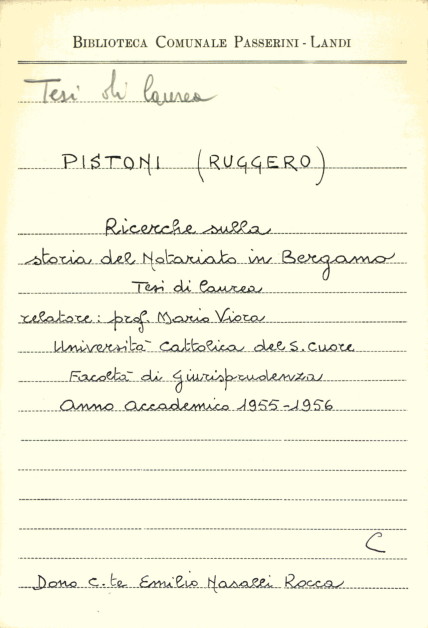 BIBLIOTECA COMUNALE PASSERINI - LANDI
Tesi di laurea
PISTONI (RUGGERO)
Ricerche sulla
storia del Notariato in Bergamo
Tesi di laurea
relatore: prof. Mario Viora
Università Cattolica del S. Cuore
Facoltà di Giurisprudenza
Anno Accademico 1955-1956
C
Dono C.te Emilio Nasalli Rocca